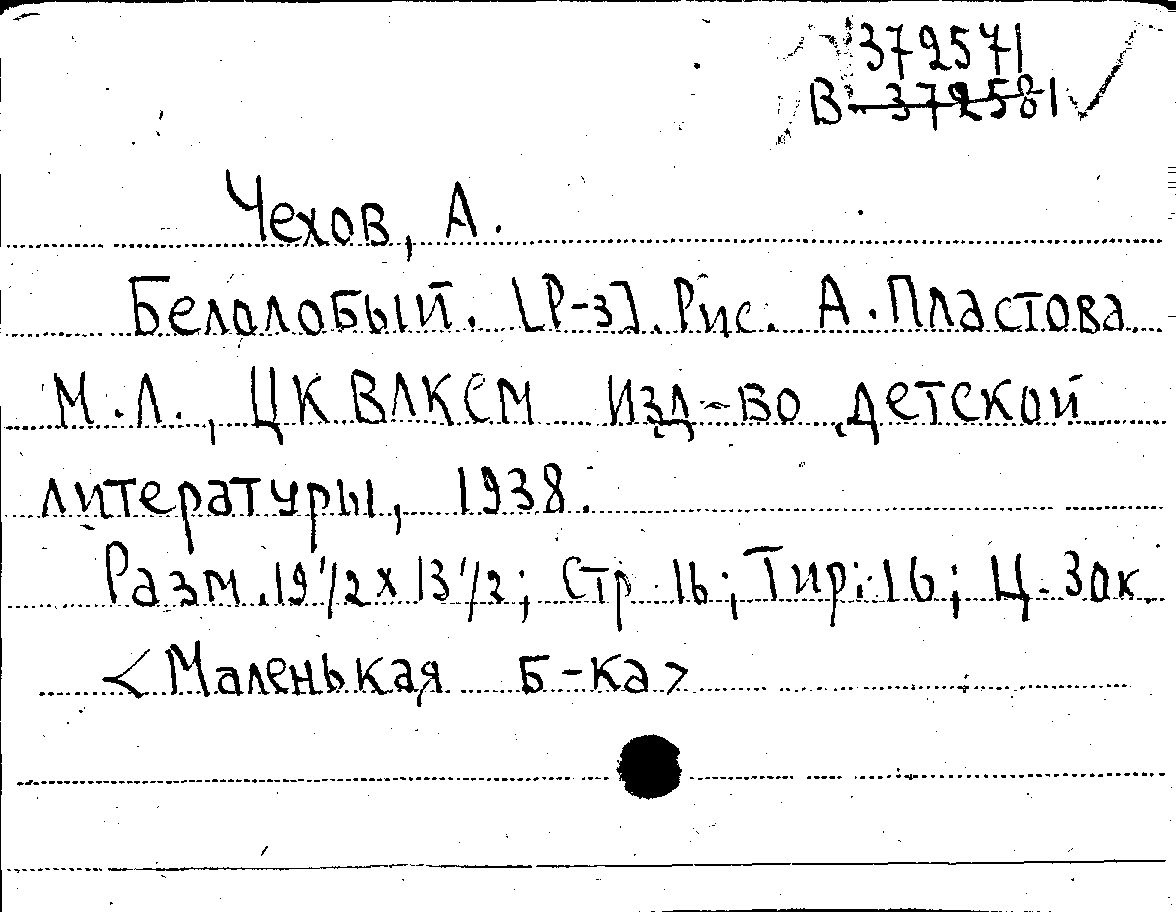 372571
В 372581
Чехов, А.
Белолобый. [Р-з]. Рис. А. Пластова
М.Л., ЦК ВЛКСМ Изд-во детской
литературы, 1938.
Разм. 19 1/2 х 13 1/2; Стр. 16; Тир. 16; Ц. 30к.
<Маленькая б-ка>